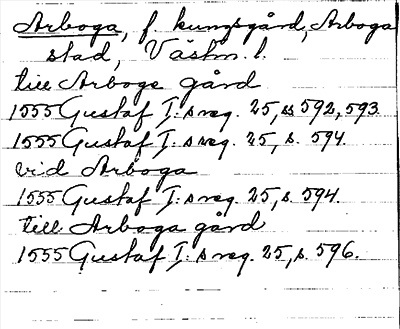 Arboga, f. kungsgård, Arboga
stad, Västm. l.
till Arboge gård
1555 Gustaf I:s reg. 25, ss 592, 593
1555 Gustaf I:s reg. 25, s. 594.
vid Arboga
1555 Gustaf I:s reg. 25, s. 594.
till Arboga gård
1555 Gustaf I:s reg. 25, s. 596.